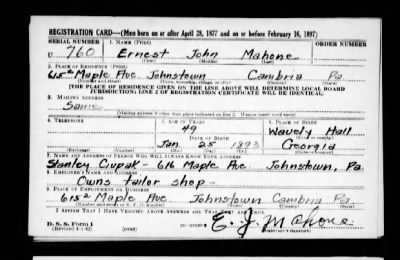 REGISTRATION CARD—(Men born on or after April 28, 1877 and on or before February 16, 1897)
SERIAL NUMBER 1. NAME (Print)
U 760 Ernest John Mahone
(First) (Middle) (Last)
2. PLACE OF RESIDENCE (Print)
615 Maple Ave. Johnstown Cambria Pa.
[THE PLACE OF RESIDENCE GIVEN ON THE LINE ABOVE WILL DETERMINE LOCAL BOARD
JURISDICTION; LINE 2 OF REGISTRATION CERTIFICATE WILL BE IDENTICAL]
3. MAILING ADDRESS
Same
[Mailing address if other than place indicated on line 2. If same insert word same]
4. TELEPHONE 5. AGE IN YEARS 6. PLACE OF BIRTH
49 Wavely Hall
DATE OF BIRTH
Jan. 25 1893 Georgia
7. NAME AND ADDRESS OF PERSON WHO WILL ALWAYS KNOW YOUR ADDRESS
Stanley Cupak 616 Maple Ave. Johnstown, Pa.
8. EMPLOYER'S NAME AND ADDRESS
Owns tailor shop
9. PLACE OF EMPLOYMENT OR BUSINESS
615 Maple Ave. Johnstown Cambria Pa.
I AFFIRM THAT I HAVE VERIFIED ABOVE ANSWERS AND THAT THEY ARE TRUE.
D. S. S. Form 1
(Revised 4-1-42) (over) E. J. Mahone